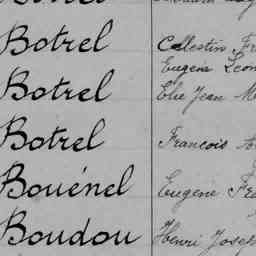 Botrel Celestin
Eugène Léon
Botrel Elie Jean
Botrel François
Bouénel Eugène
Boudou Henri Joseph